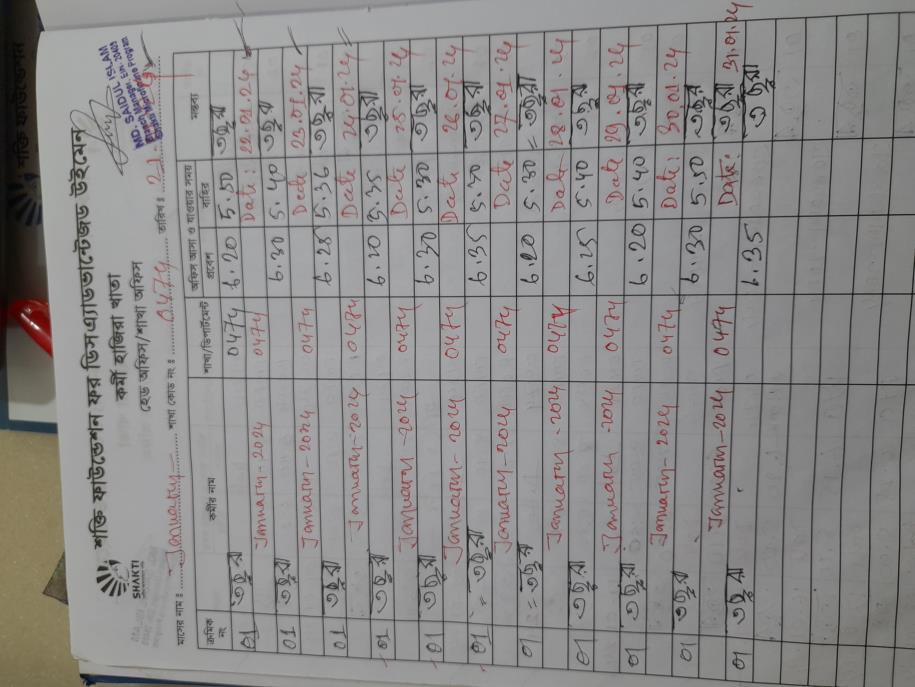 শক্তি ফাউন্ডেশন ফর ডিসএ্যাডভান্টেজড উইমেন
কর্মী হাজিরা খাতা
হেড অফিস/শাখা অফিস
SHAKTI
MD. SAIDUL ISLAM
Branch Manager, Ein: 20409
মাসের নাম ঃ January শাখা কোড নং ঃ 0474 তারিখ ঃ
ক্রমিক নং কর্মীর নাম শাখা/ডিপার্টমেন্ট অফিস আসা ও যাওয়ার সময় মন্তব্য
প্রবেশ বাহির
01 তহুরা 0474 ৮.20 5.50 তহুরা
January-2024 0474 Date: 22.01.24
01 তহুরা ৮.30 5.40 তহুরা
January-2024 0474 Date 23.01.24
01 তহুরা ৮.25 5.36 তহুরা
January-2024 0474 Date 24.01.24
01 তহুরা ৮.20 5.35 তহুরা
January-2024 0474 Date 25.01.24
01 তহুরা ৮.30 5.30 তহুরা
January-2024 0474 Date 26.01.24
01 = তহুরা ৮.35 5.30 তহুরা
January-2024 0474 Date 27.01.24
01 = তহুরা ৮.20 5.30 = তহুরা
January-2024 0474 Date 28.01.24
01 তহুরা ৮.25 5.40 তহুরা
January-2024 0474 Date 29.01.24
01 তহুরা ৮.20 5.40 তহুরা
January-2024 0474 Date: 30.01.24
01 তহুরা ৮.30 5.50 তহুরা
January-2024 0474 Date: তহুরা 31.01.24
01 তহুরা ৮.35 তহুরা